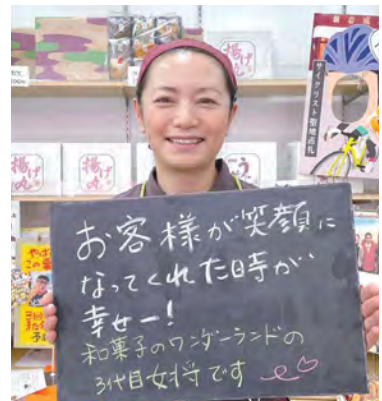 揚げ丸
サイクリスト聖地巡礼
揚げ丸
揚げ丸
お客様が笑顔に
なってくれた時が
幸せー!
和菓子のワンダーランドの
3代目女将です